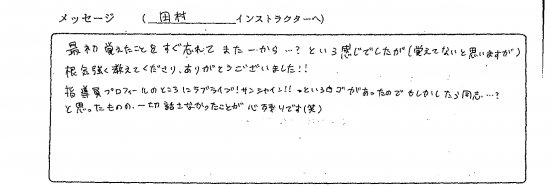 メッセージ ( 田村 インストラクターへ)
最初 覚えたことをすぐ忘れて また一から…? という感じでしたが (覚えてないと思いますが)
根気強く教えてくださり、ありがとうございました!!
指導員プロフィールのところにラブライブ!サンシャイン!! っていうロゴがあったので もしかしたら同志…?
と思ったものの、一切話さなかったことが 心残りです(笑)